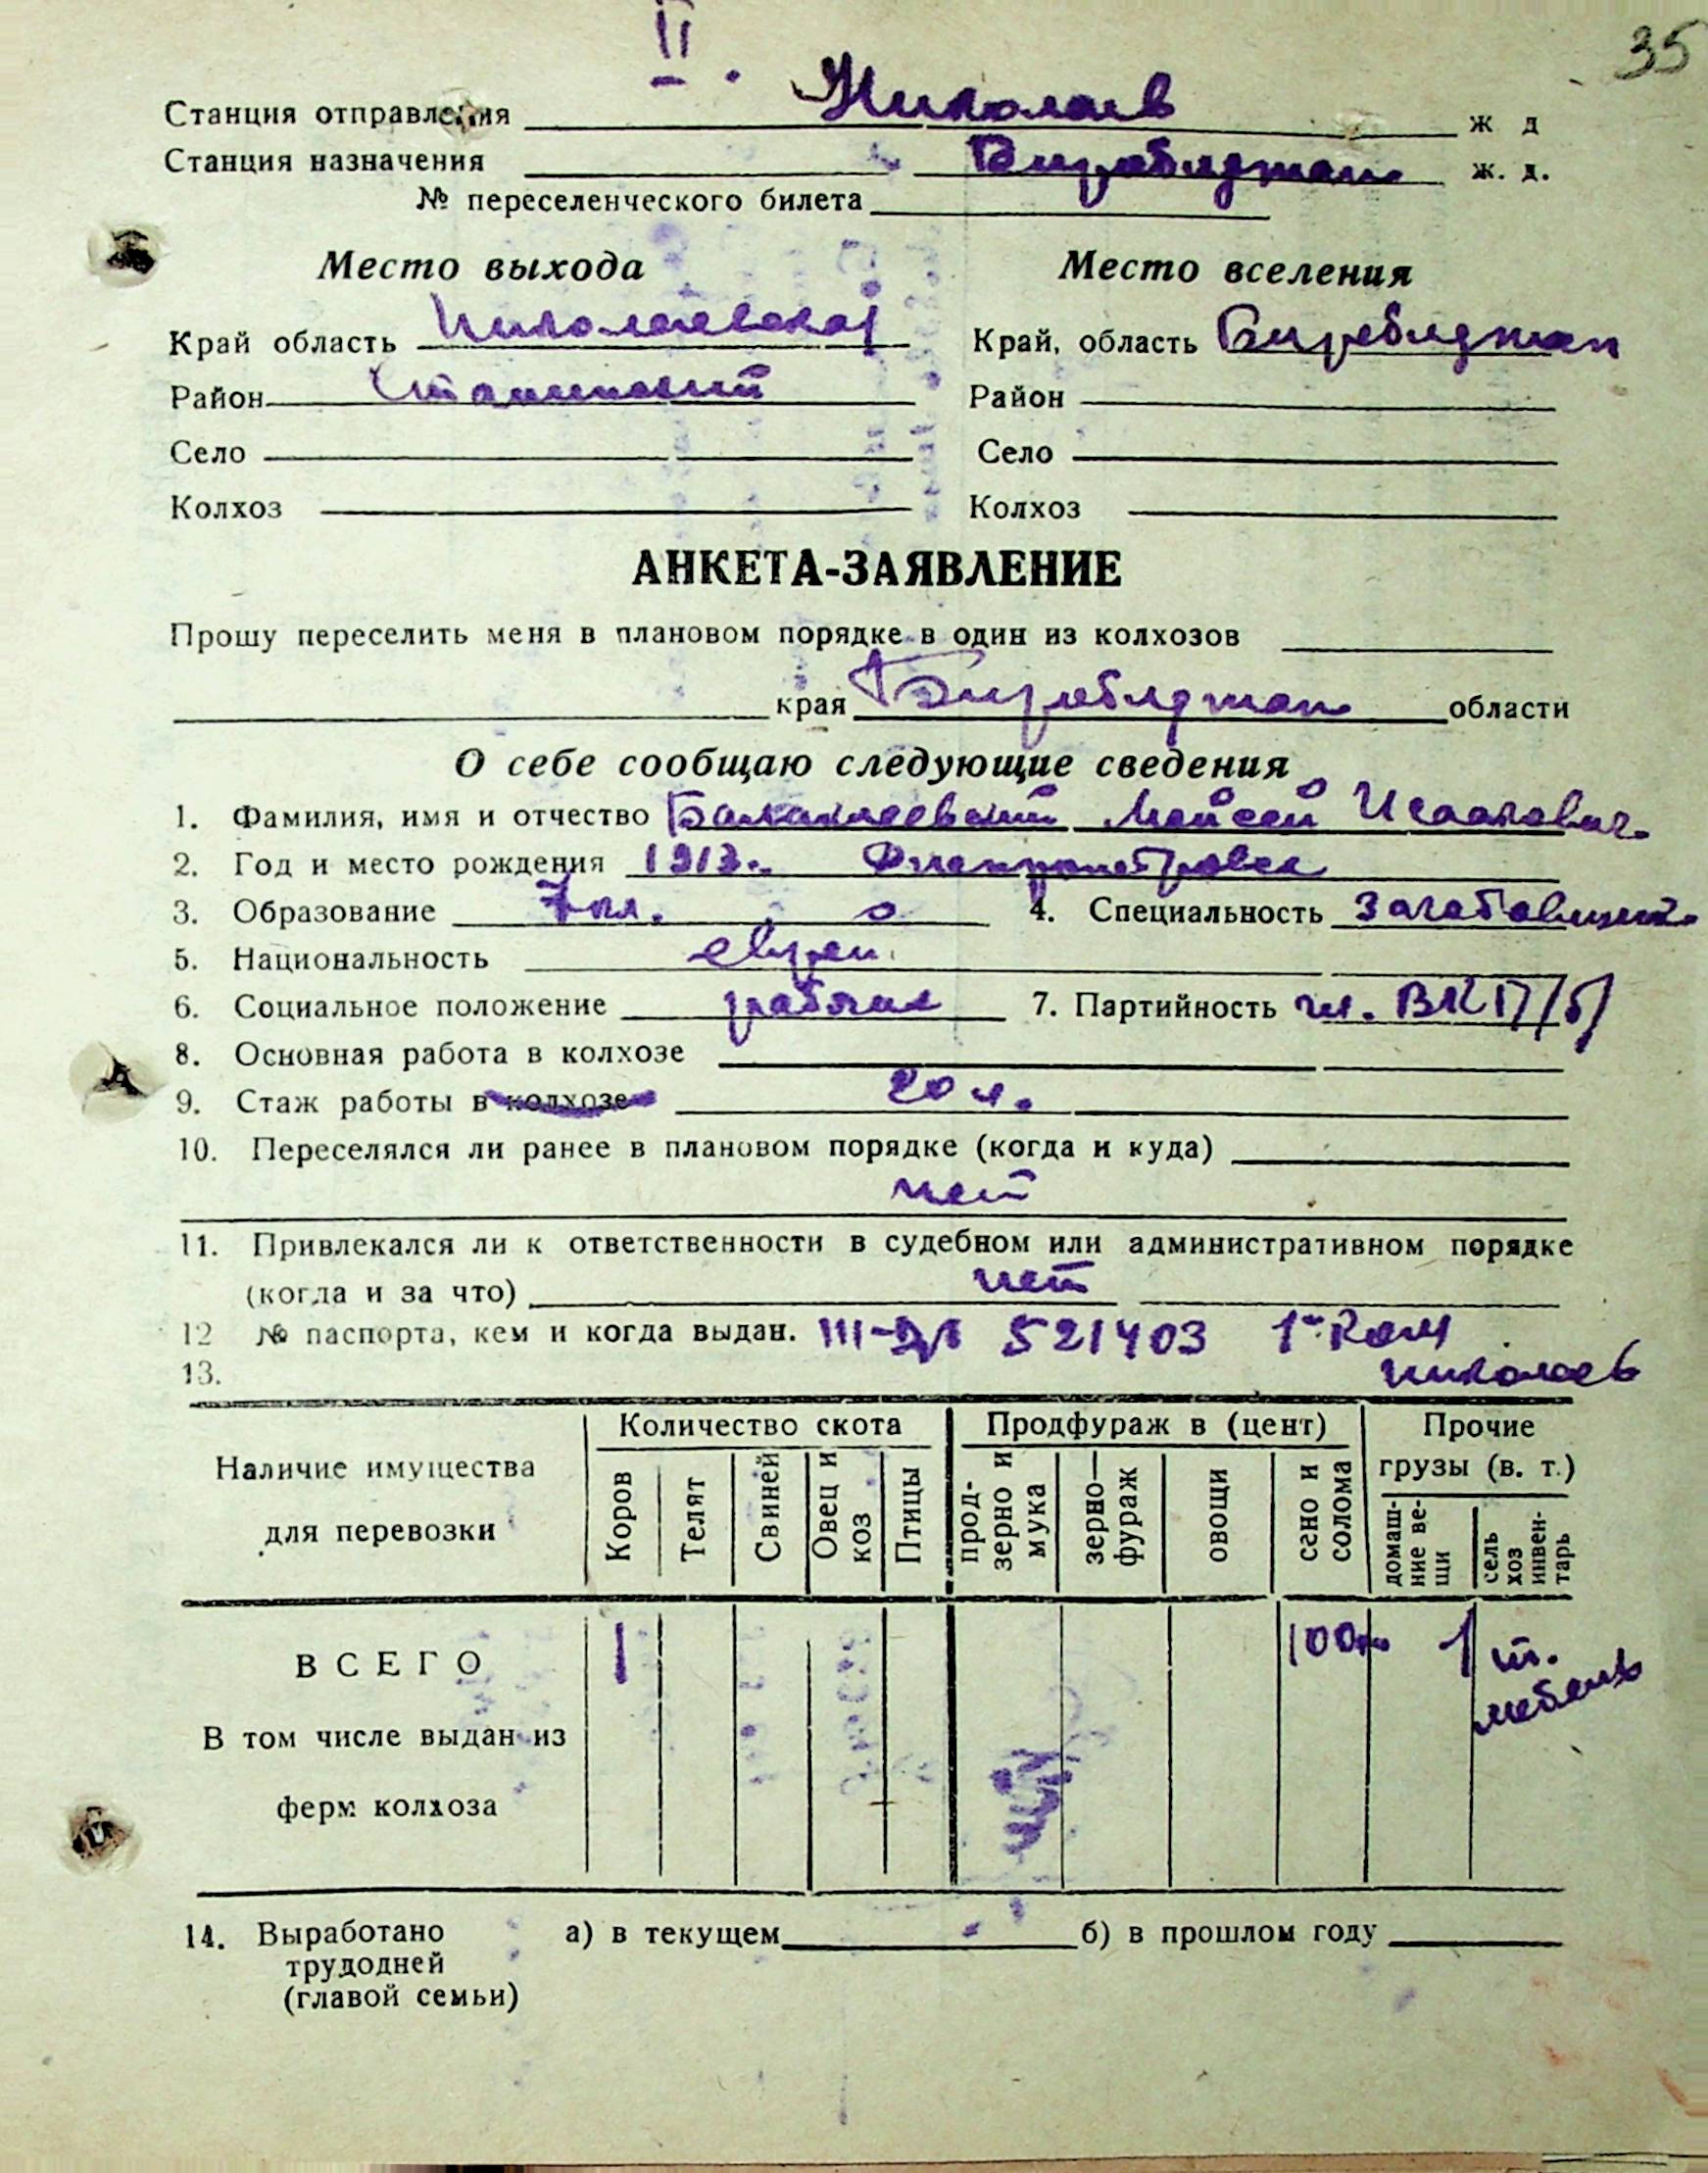 II.
35
Станция отправления Николаев ж д
Станция назначения Биробиджан ж. д.
№ переселенческого билета
Место выхода
Место вселения
Край область Николаевская
Край, область Биробиджан
Район Сталинский
Район
Село
Село
Колхоз
Колхоз
АНКЕТА-ЗАЯВЛЕНИЕ
Прошу переселить меня в плановом порядке в один из колхозов
края Биробиджан области
О себе сообщаю следующие сведения
1. Фамилия, имя и отчество Мойсей Исаакович
2. Год и место рождения 1913. Днепропетровск
3. Образование 7 кл. 4. Специальность
5. Национальность еврей
6. Социальное положение рабочий 7. Партийность чл. ВКП/б/
8. Основная работа в колхозе
9. Стаж работы в колхозе 20 л.
10. Переселялся ли ранее в плановом порядке (когда и куда)
нет
11. Привлекался ли к ответственности в судебном или административном порядке
(когда и за что) нет
12 № паспорта, кем и когда выдан. 521403
Николаев
13.
Наличие имущества
для перевозки
Количество скота
Коров
Телят
Свиней
Овец и
коз
Птицы
Продфураж в (цент)
прод-
зерно и
мука
зерно—
фураж
овощи
сено и
солома
Прочие
грузы (в. т.)
домаш-
ние ве-
щи
сель
хоз
инвен-
тарь
ВСЕГО 1 1 т.
мебель
В том числе выдан из
ферм колхоза
14. Выработано а) в текущем б) в прошлом году
трудодней
(главой семьи)